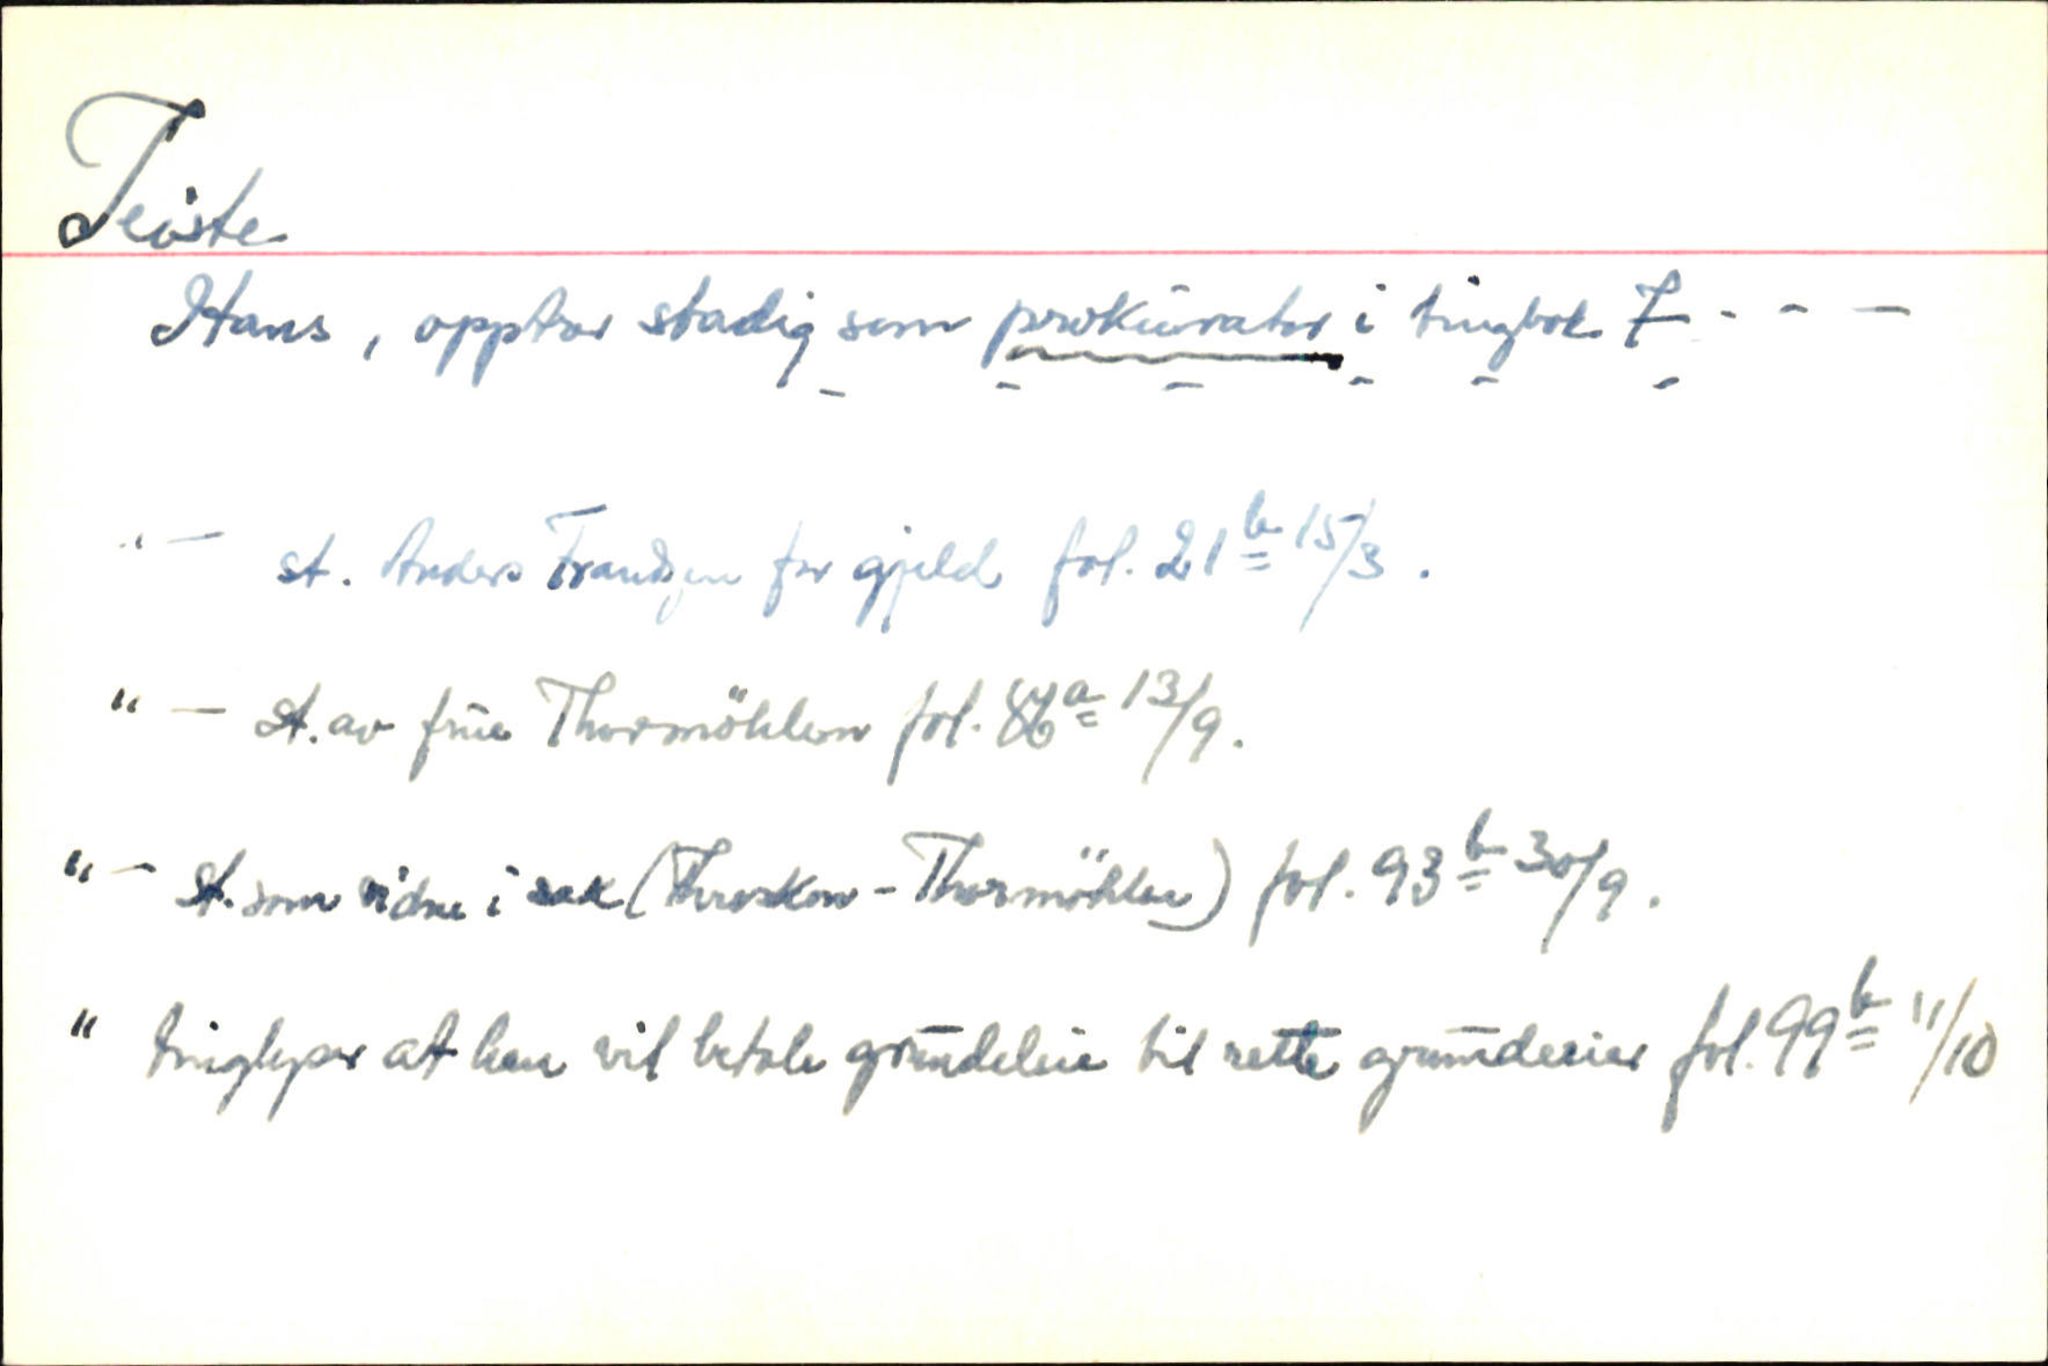 Teiste
Hans, opptrer stadig som prokurator i tingbok 7 - - -
- - - - - -
" — st. Anders Frandzen for gjeld fol. 21 b 15/3.
" — st. av frue Thormöhlen fol. 86 a 13/9.
" — st. som vidne i sak ( - Thormöhlen) fol. 93 b 30/9.
" tinglyser at han vil betale grundeleie til rette grundeeier fol. 99 b 11/10